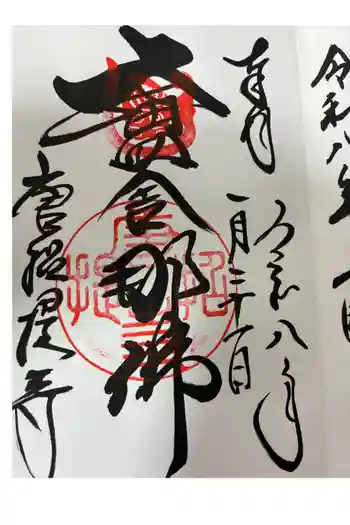 令和八年一月
奉拝
令和八年
一月三十一日
盧舎那佛
唐招提寺